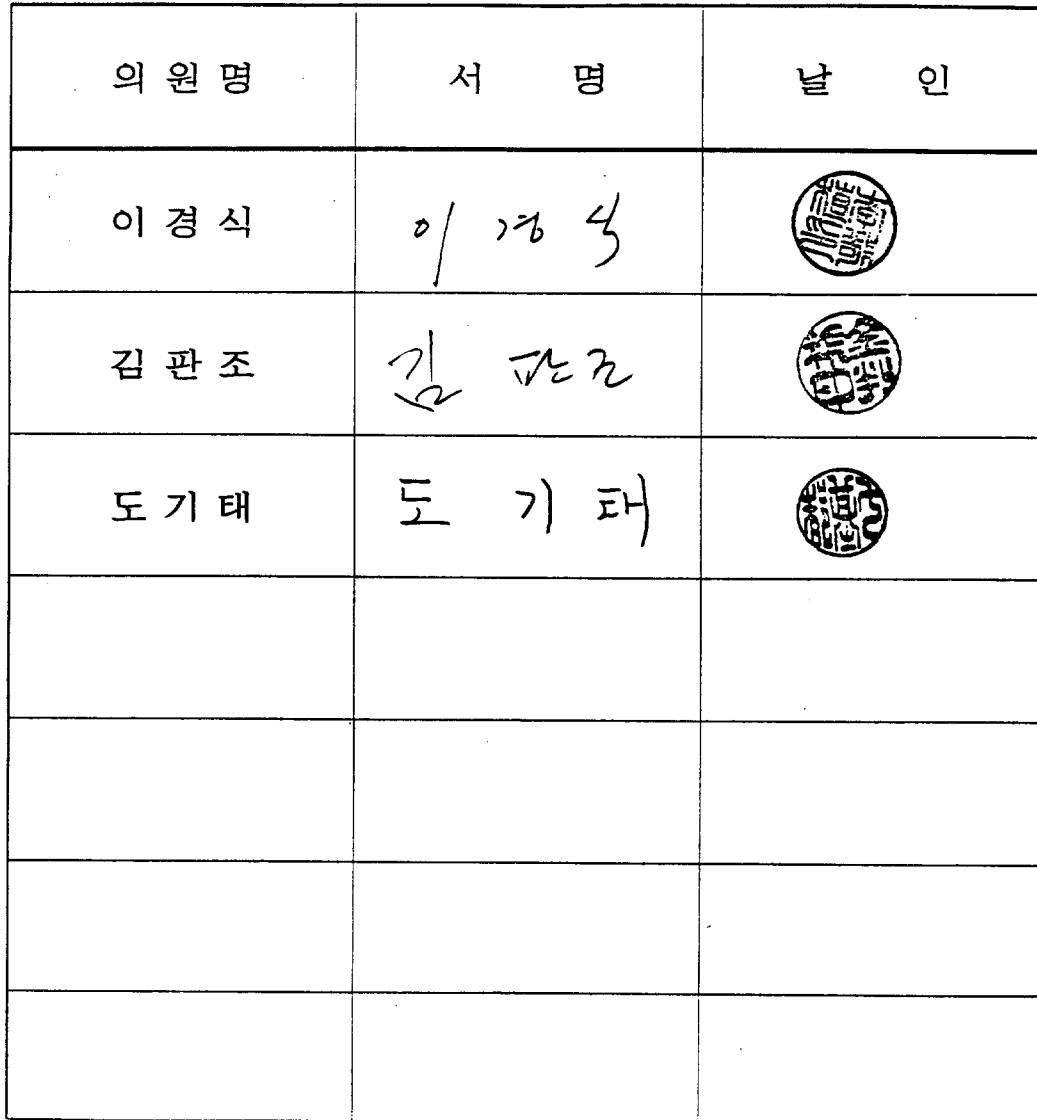 의원명 서 명 날 인
이경식 이경식
김판조 김판조
도기태 도기태